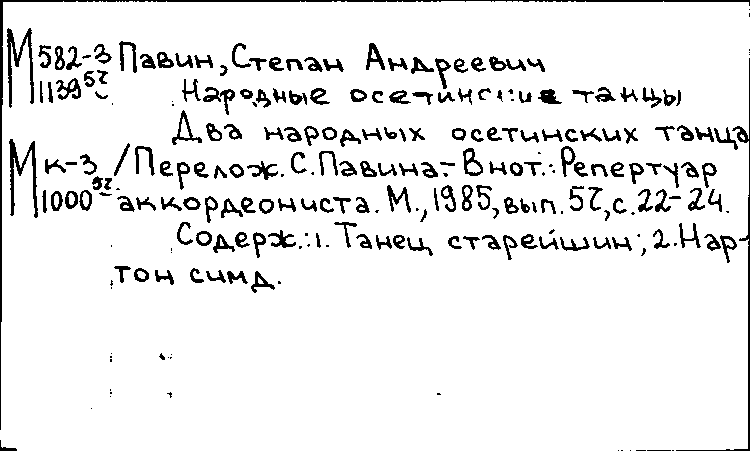 М 582-3 Павин, Степан Андреевич
1139 57 Народные осетинские танцы
Два народных осетинских танца
М к-3 /Перелож. С. Павина.- В нот.: Репертуар
1000 57 аккордеониста. М., 1985, вып. 57, с. 22-24.
Содерж.: 1. Танец старейшин; 2. Нар-
тон симд.